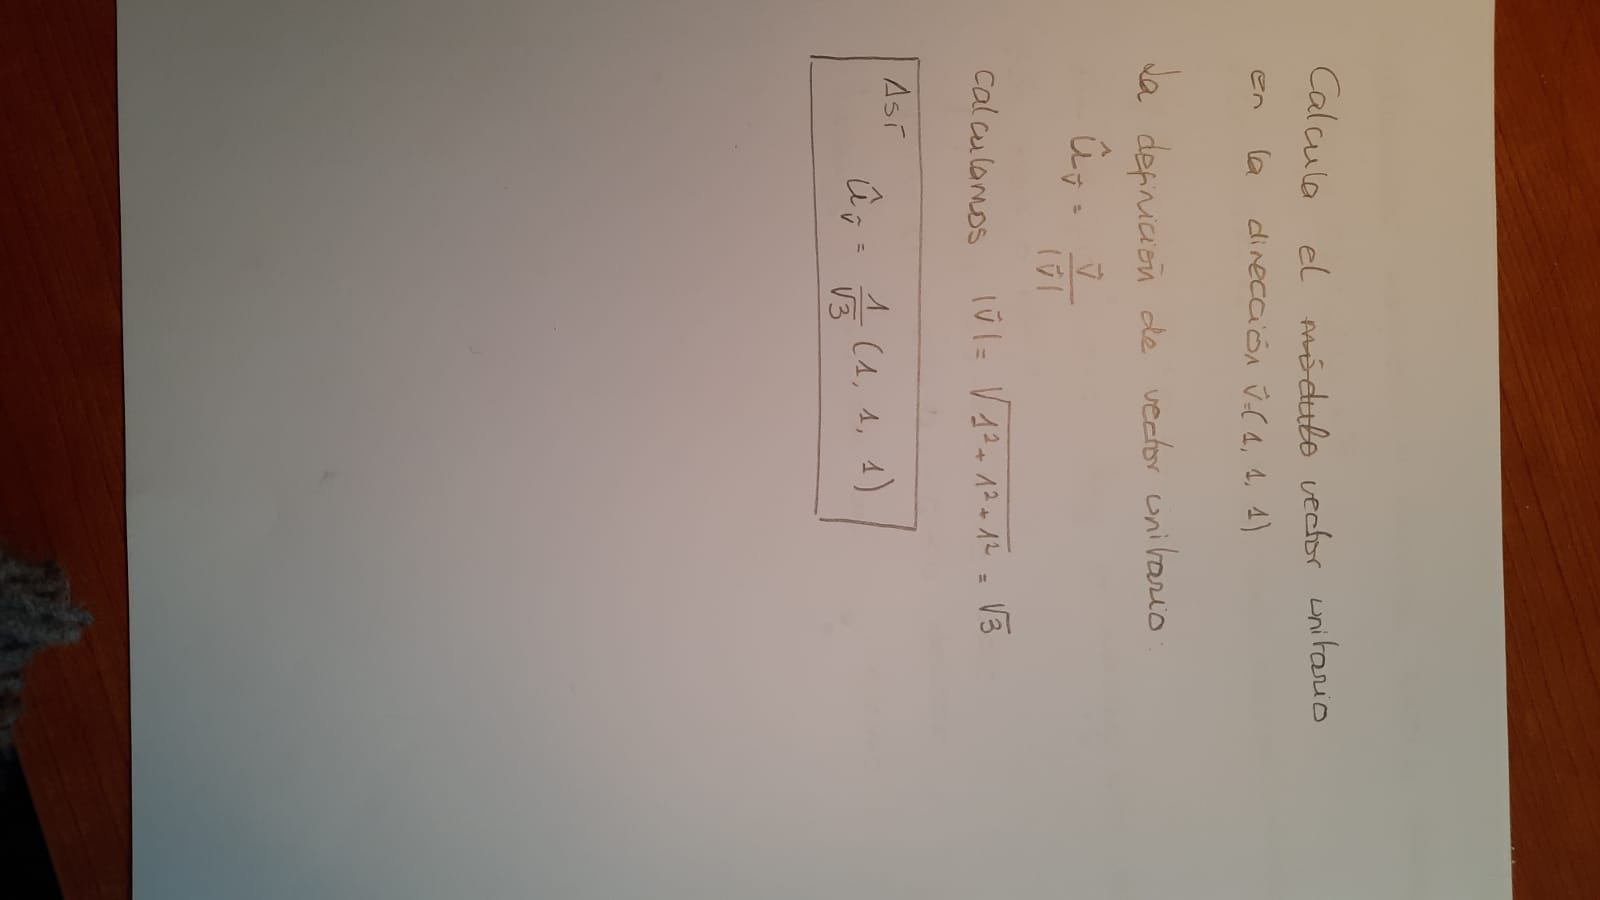 Calcula el módulo vector unitario
en la dirección v⃗=(1, 1, 1)
La definición de vector unitario:
û_v⃗ = v⃗ / |v⃗|
Calculamos |v⃗| = √(1² + 1² + 1²) = √3
Así û_v⃗ = 1/√3 (1, 1, 1)